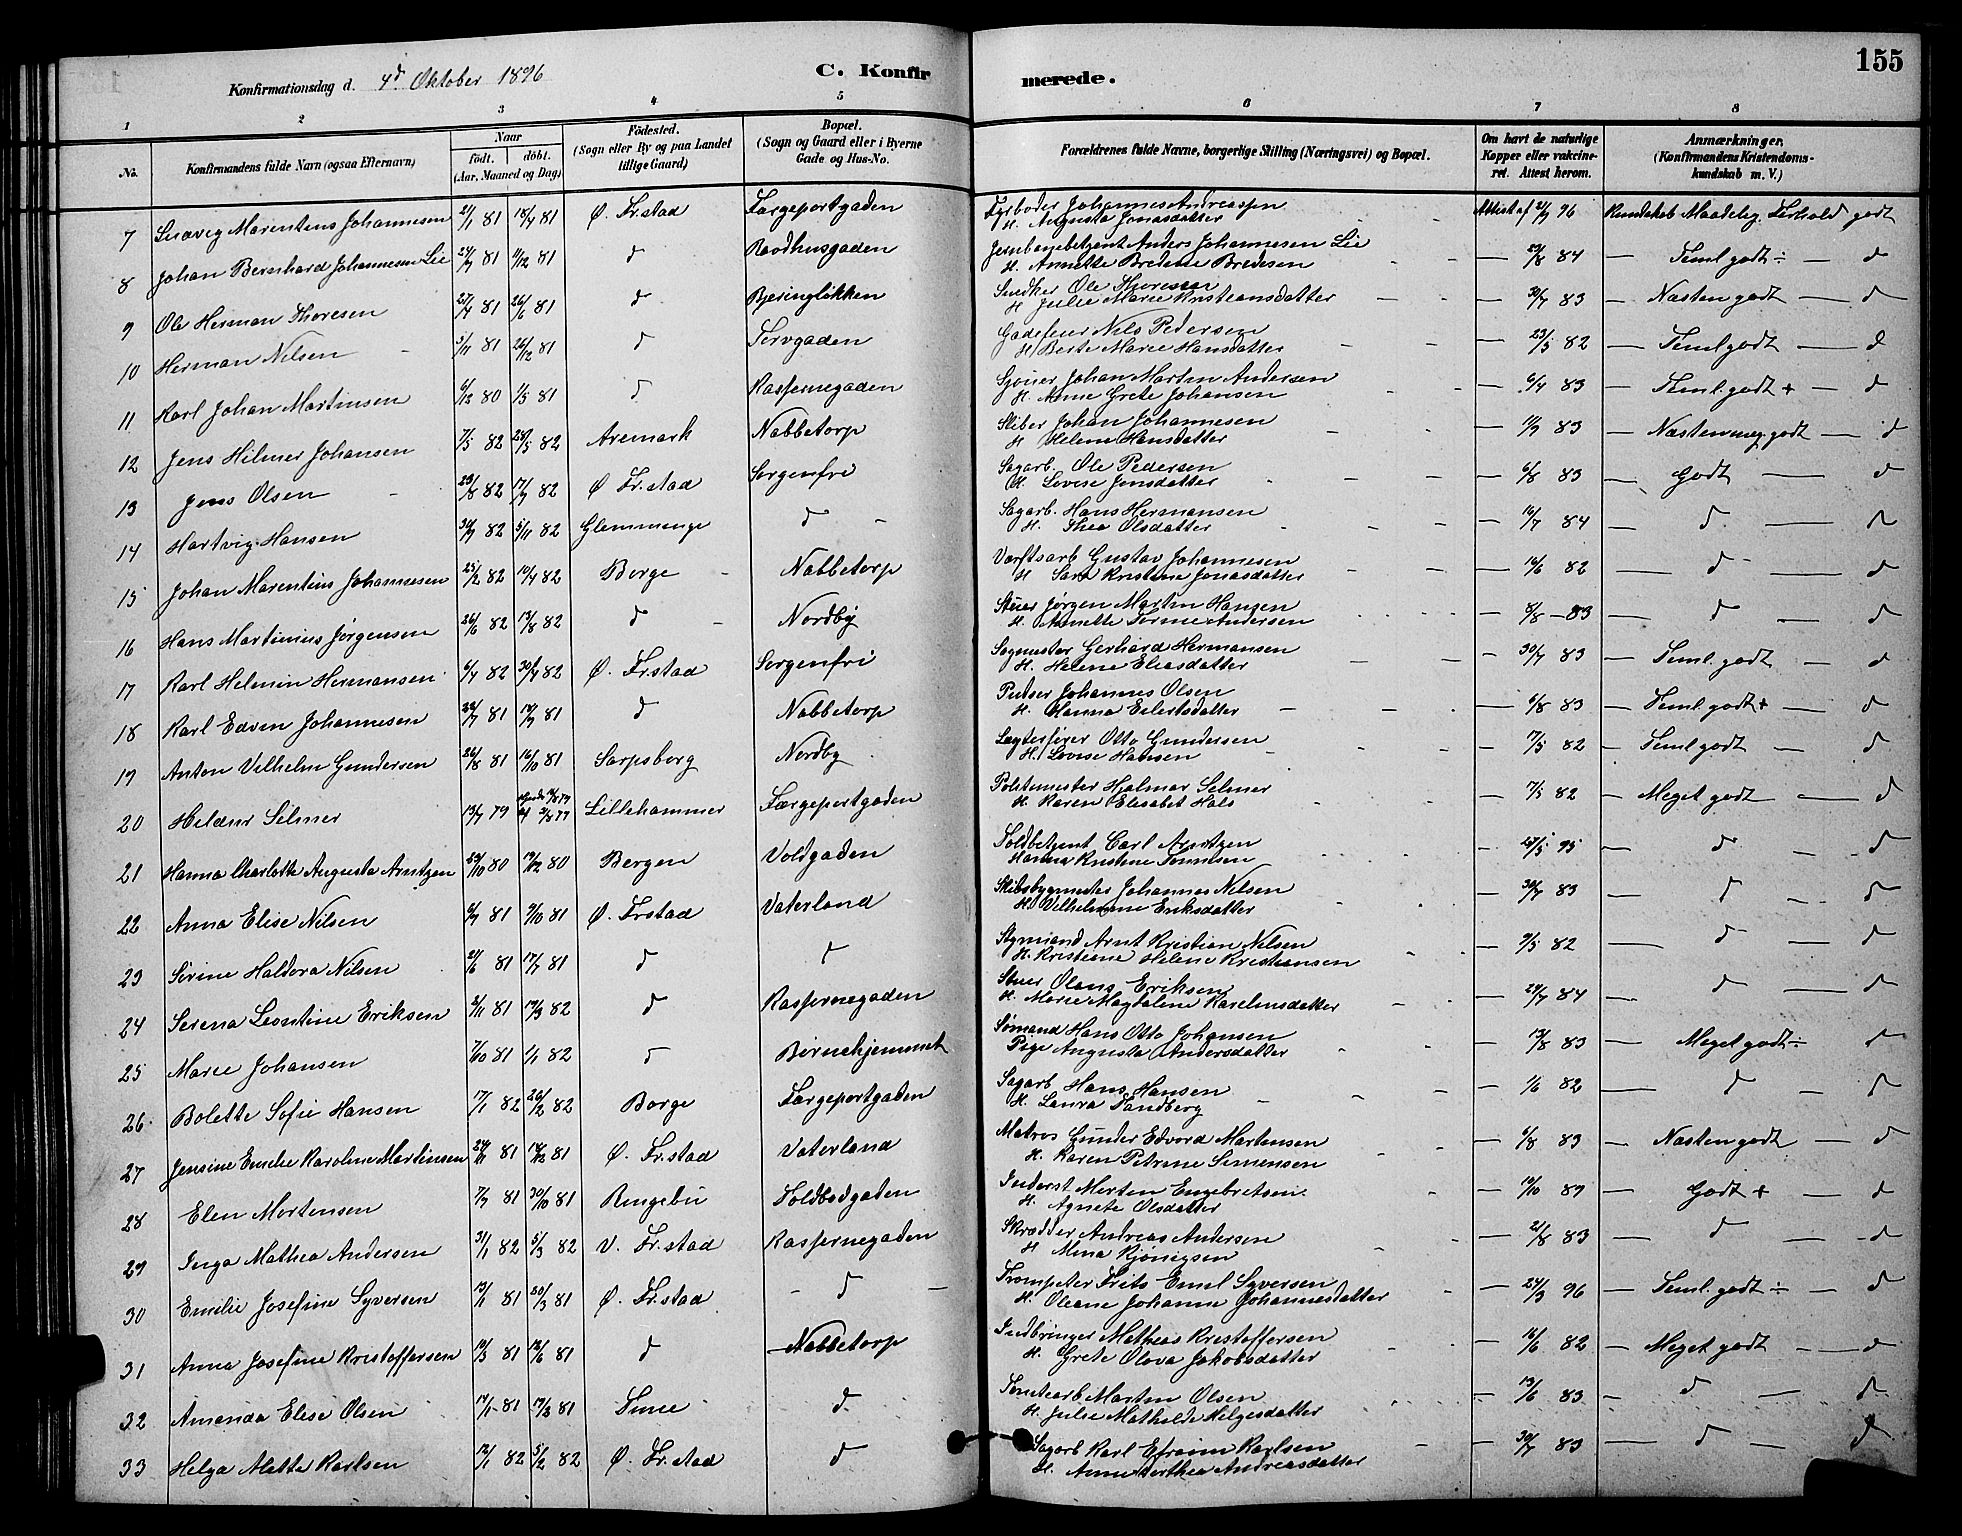 155
Konfirmationsdag d. 4d Oktober 1896
C. Konfirmerede.
1 2 3 4 5 6 7 8
No.
Konfirmandens fulde Navn (ogsaa Efternavn)
Naar
födt. döbt.
(Aar, Maaned og Dag)
Födested.
(Sogn eller By og paa Landet tillige Gaard)
Bopæl.
(Sogn og Gaard eller i Byerne Gade og Hus-No.
Forældrenes fulde Navne, borgerlige Stilling (Næringsvei) og Bopæl.
Om havt de naturlige Kopper eller vakcineret. Attest herom.
Anmærkninger.
(Konfirmandens Kristendomskundskab m. V.)
7 Ludvig Marentius Johannesen 2/1 81 18/4 81 Ø. Fr.stad Færgeportgaden Fyrbøder Johannes Andreassen H. Augusta Jonasdatter Attest af 21/9 96 Kundskab Maadelig. Forhold godt
8 Johan Bernhard Johannesen Lie 24/9 81 11/12 81 d Raadhusgaden Jernbanebetjent Anders Johannesen Lie H. Annette Bredine Bredesen — 29/8 84 — Teml godt ÷ — d
9 Ole Herman Thoresen 27/4 81 26/6 81 d Bjeringløkken Snedker Ole Thoresen H. Julie Marie Kristiansdatter — 30/7 83 — Næsten godt — d
10 Herman Nilsen 5/11 81 26/12 81 d Torvgaden Gadefeier Nils Pedersen H. Berte Marie Hansdatter — 23/5 82 — Teml godt — d
11 Karl Johan Martinsen 6/12 80 1/5 81 d Kasernegaden Johan Martin Andersen H. Anne Grete Johansen — 6/4 83 — Teml. godt + — d
12 Jens Hilmer Johansen 7/5 82 28/5 82 Aremark Nabbetorp Sliber Johan Johannesen H. Helene Hansdatter — 11/9 83 — Næsten meg. godt — d
13 Jens Olsen 23/8 82 17/9 82 Ø Fr.stad Sorgenfri Sagarb. Ole Pedersen H. Lovise Jensdatter — 6/8 83 — Godt — d
14 Hartvig Hansen 30/9 82 5/11 82 Glemminge d Sagarb. Hans Hermansen H. Thea Olsdatter — 16/7 84 — d — d
15 Johan Marentius Johannesen 25/2 82 10/4 82 Borge Nabbetorp Værftsarb Gustav Johannesen H Sara Kristine Jonasdatter — 16/6 82 — d — d
16 Hans Martinius Jørgensen 26/6 82 13/8 82 d Nordby Stuer Jørgen Martin Hansen H. Annette Andersen — 8/8 — 83 — d — d
17 Karl Helmin Hermansen 6/4 82 30/4 82 Ø. Fr.stad Sorgenfri Sagmester Gerhard Hermansen H. Helene Eliasdatter — 30/7 83 — Teml. godt — d
18 Karl Edvin Johannesen 81 81 d Nabbetorp Pudser Johannes Olsen H. Hanna Eilertsdatter — 6/8 83 — Teml godt + — d
19 Anton Vilhelm Gundersen 26/8 81 16/10 81 Sarpsborg Nordby Lægterfører Otto Gundersen H. Lovise Hansen — 17/5 82 — Teml godt — d
20 Selmer 13/7 79 Lillehammer Færgeportgaden Politimester Hjalmar Selmer H. Karen Elisabet Hals — 7/5 82 — Meget godt — d
21 Hanna Charlotte Augusta Arntzen 29/10 80 19/12 80 Bergen Voldgaden Toldbetjent Carl Arntzen Hanna Kristine — 28/5 95 — d — d
22 Anna Elise Nilsen 6/9 81 9/10 81 Ø. Frstad Vaterland Skibsbygmester Johannes Nilsen H. Vilhelmine Eriksdatter — 30/7 83 — d — d
23 Sørine Haldora Nilsen 21/6 81 17/7 81 d d Styrmand Arnt Kristian Nilsen H. Kristiane Helene Kristiansen — 9/5 82 — d — d
24 Serena Leontine Eriksen 2/11 81 19/3 82 d Kasernegaden Stuer Olaus Eriksen H. Marie Magdalene Karelinsdatter — 29/7 84 — d — d
25 Marie Johansen 7/10 81 1/1 82 d Børnehjemmet Sømand Hans Otto Johansen Pige Augusta Andersdatter — 13/8 83 — Meget godt ÷ d
26 Bolette Sofie Hansen 17/1 82 26/2 82 Borge Færgeportgaden Sagarb Hans Hansen H. Laura Sandberg — 1/6 82 — d — d
27 Jensine Emilie Karoline Martinsen 81 81 Ø. Fr.stad Vaterland Matros Gunder Edvard Martinsen H. Karen Petrine Simensen — 6/8 83 — Næsten godt — d
28 Elen Mortensen 7/9 81 30/10 81 Ringebu Toldbodgaden Inderst Morten Engebretsen H. Agnete Olsdatter — 19/10 89 — Godt + — d
29 Inga Mathea Andersen 31/1 82 5/3 82 V. Fr.stad Kasernegaden Skrædder Andreas Andersen H. Mina Kjønigsen — 21/8 83 — d — d
30 Emilie Josefine Syversen 13/1 81 20/3 81 Ø. Fr.stad — d — Trompeter Frits Emil Syversen H. Oleane Johanne Johannesdatter — 24/3 96 — Teml. godt ÷ — d
31 Anna Josefine Kristoffersen 19/3 81 12/6 81 d Nabbetorp Indbringer Mathias Kristoffersen H. Grete Olova Jakobsdatter — 16/6 82 — Meget godt — d
32 Amanda Elise Olsen 17/1 81 19/3 81 Tune d Tomtearb Morten Olsen H. Julie Mathilde Helgesdatter — 13/6 83 — d — d
33 Helga Mette Karlsen 12/1 82 5/2 82 Ø. Fr.stad d Sagarb Karl Efraim Karlsen H. Anne Dorthea Andreasdatter — 30/7 83 — d — d